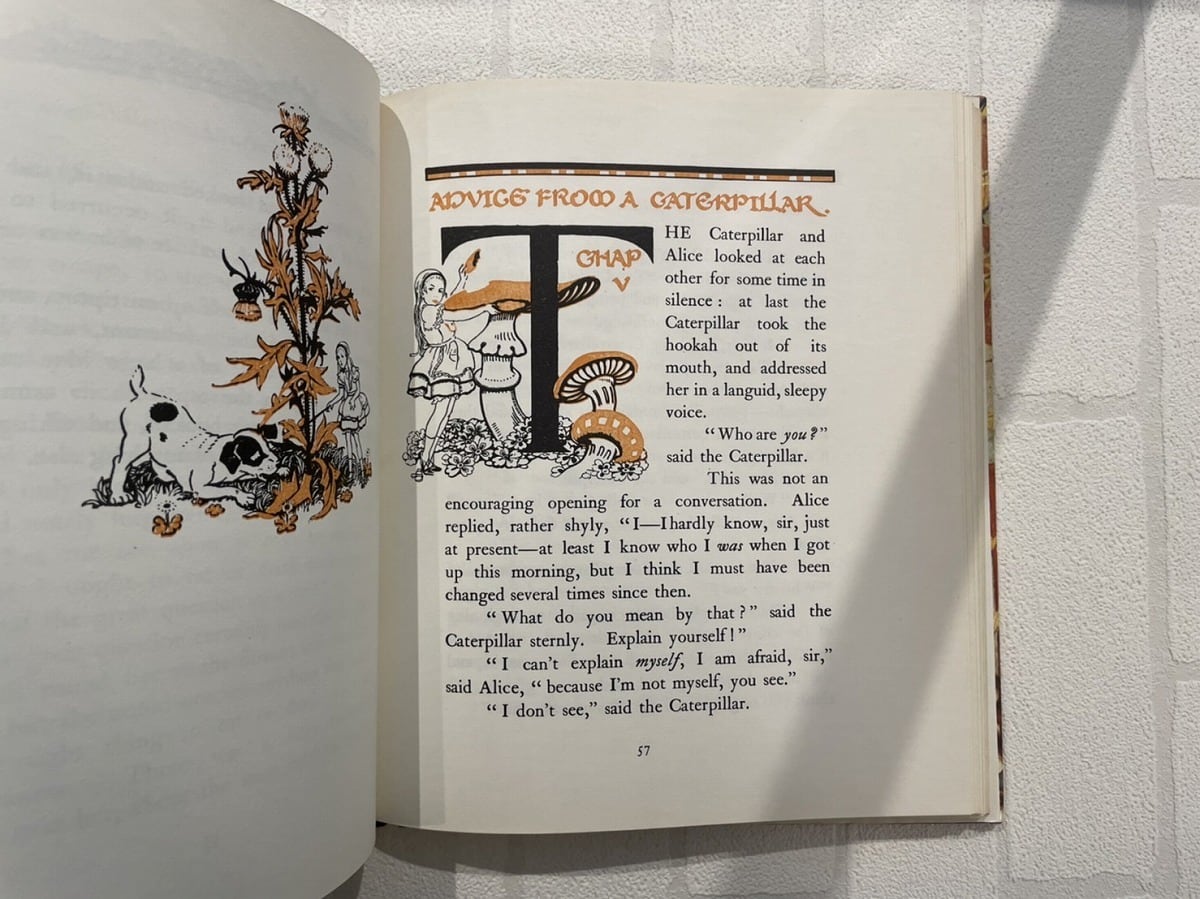 ADVICE FROM A CATERPILLAR.
CHAP
V
THE Caterpillar and
Alice looked at each
other for some time in
silence : at last the
Caterpillar took the
hookah out of its
mouth, and addressed
her in a languid, sleepy
voice.
“Who are you?”
said the Caterpillar.
This was not an
encouraging opening for a conversation. Alice
replied, rather shyly, “I—I hardly know, sir, just
at present—at least I know who I was when I got
up this morning, but I think I must have been
changed several times since then.
“What do you mean by that?” said the
Caterpillar sternly. Explain yourself!”
“I can't explain myself, I am afraid, sir,”
said Alice, “because I'm not myself, you see.”
“I don't see,” said the Caterpillar.
57